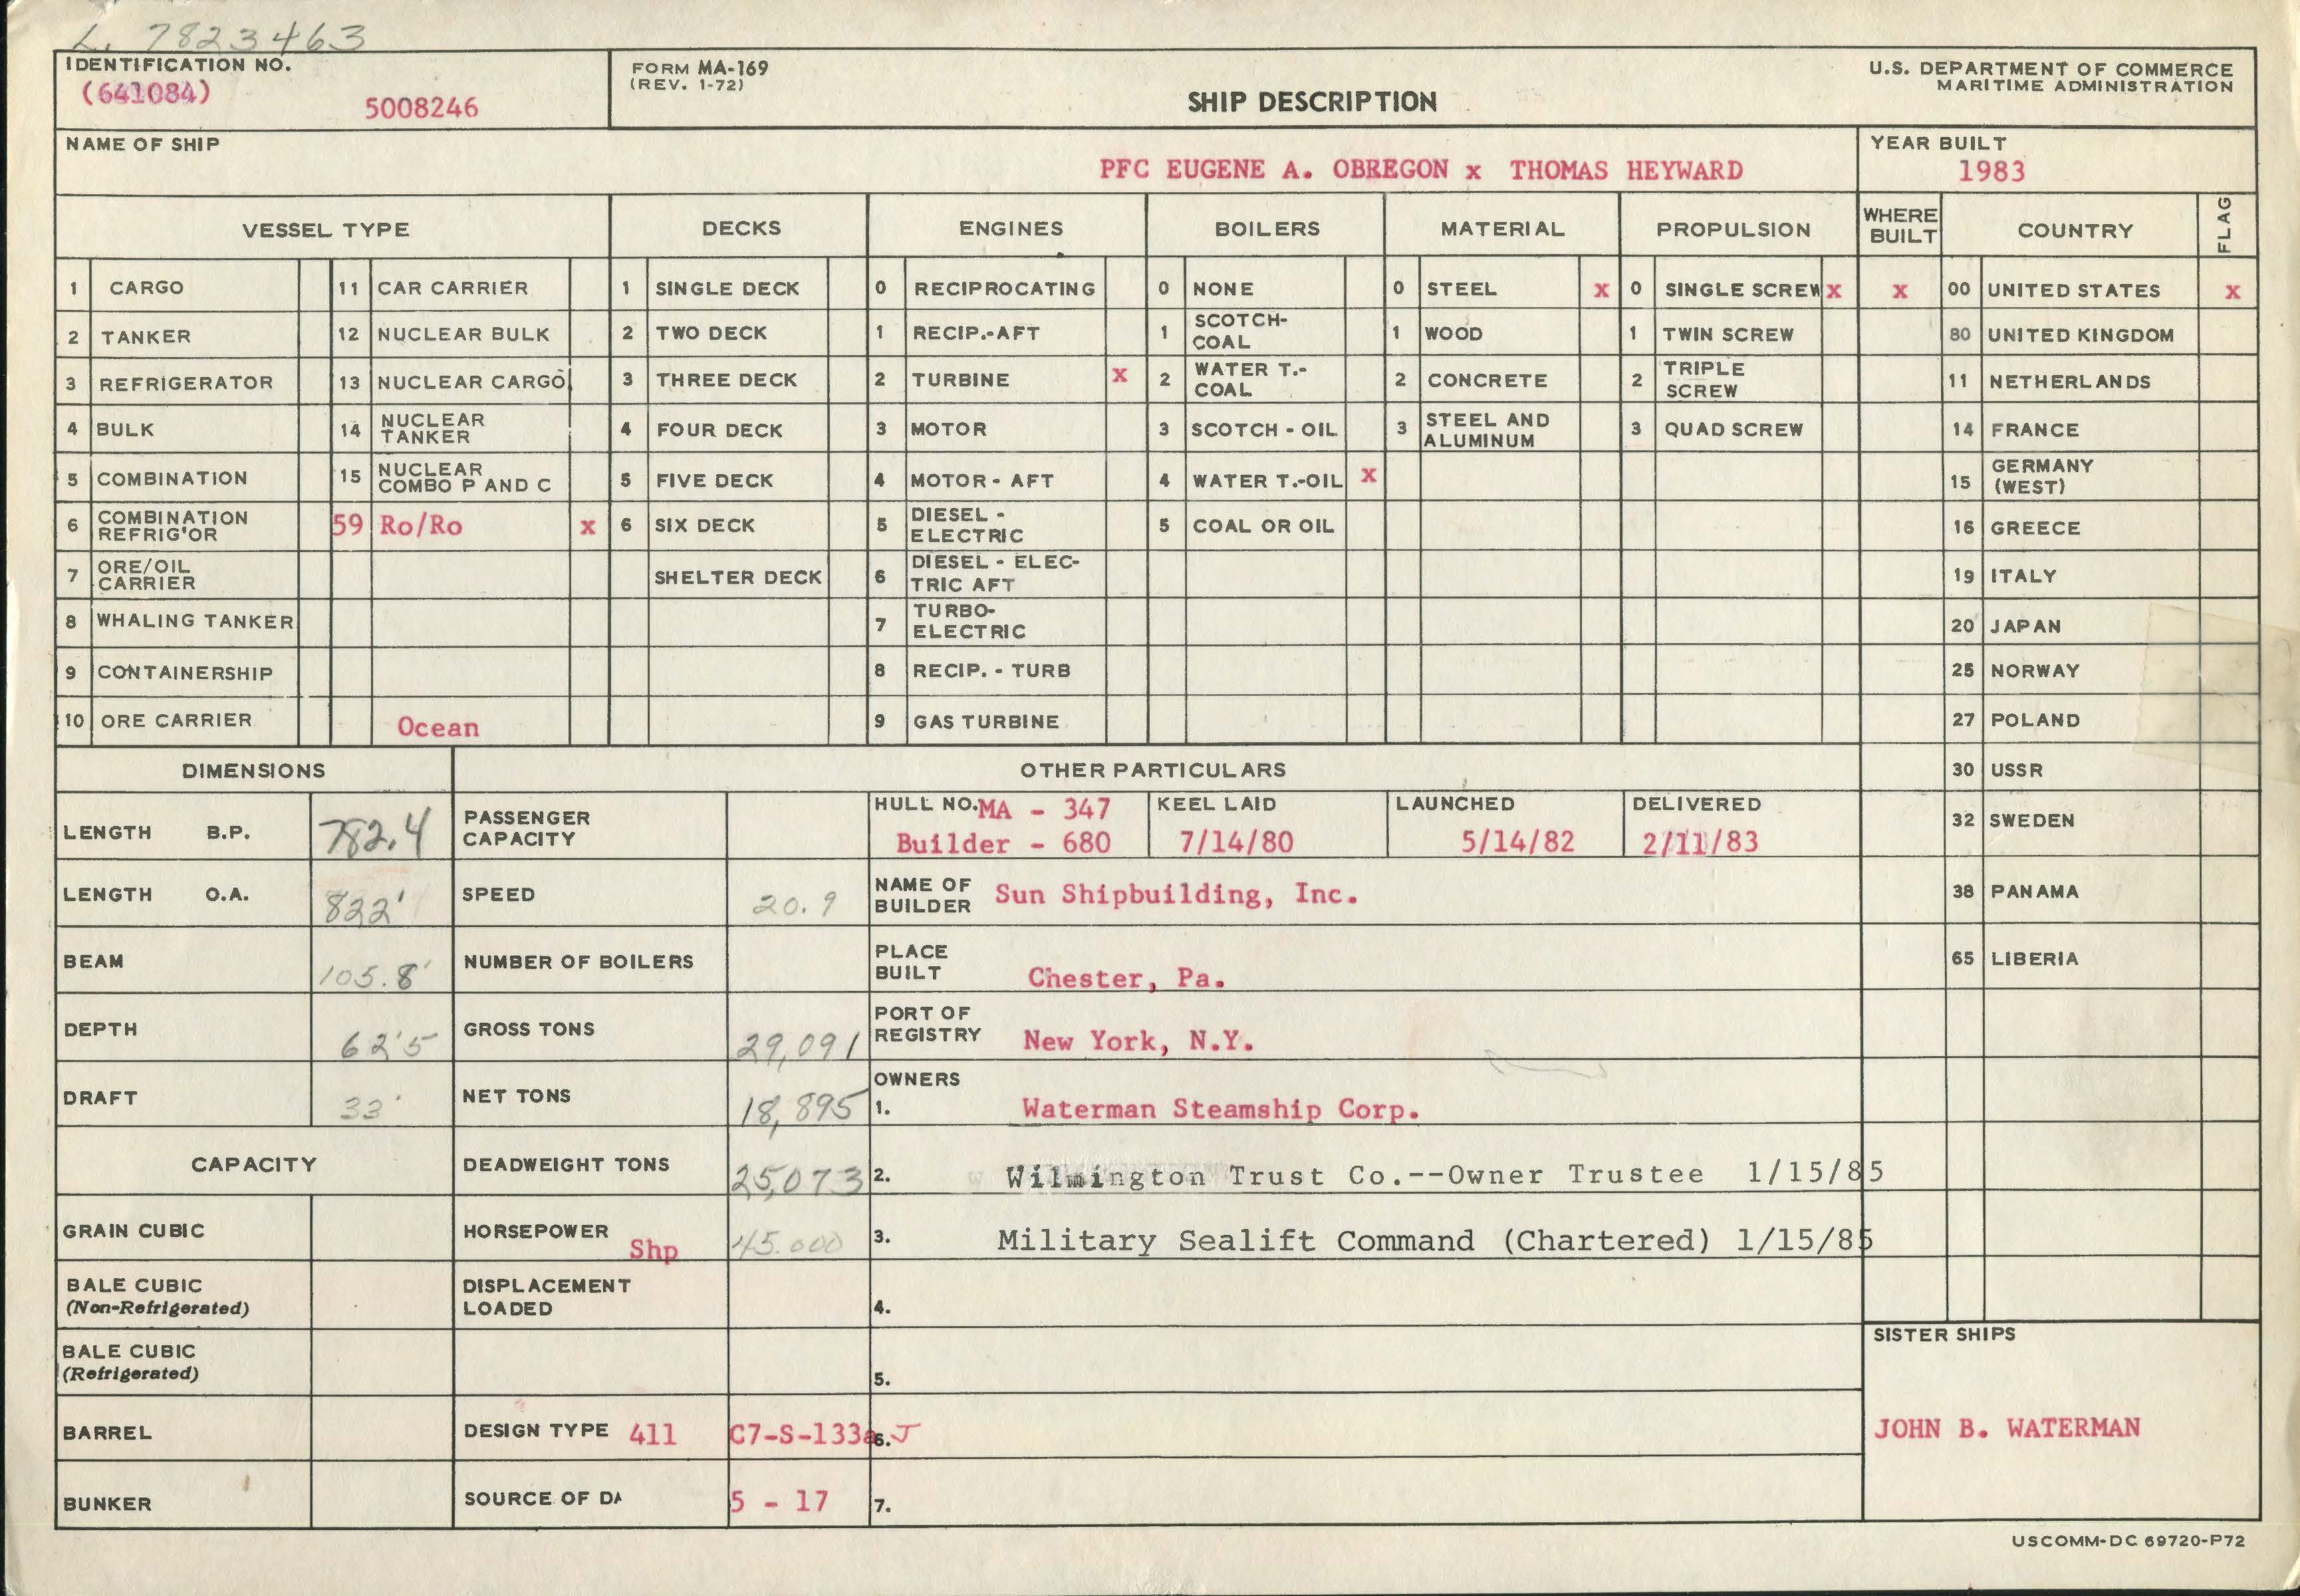 L. 7823463
IDENTIFICATION NO.
(641084) 5008246
FORM MA-169
(REV. 1-72)
SHIP DESCRIPTION
U.S. DEPARTMENT OF COMMERCE
MARITIME ADMINISTRATION
NAME OF SHIP
PFC EUGENE A. OBREGON x THOMAS HEYWARD
YEAR BUILT
1983
VESSEL TYPE DECKS ENGINES BOILERS MATERIAL PROPULSION WHERE BUILT COUNTRY FLAG
1 CARGO 11 CAR CARRIER 1 SINGLE DECK 0 RECIPROCATING 0 NONE 0 STEEL x 0 SINGLE SCREW x x 00 UNITED STATES x
2 TANKER 12 NUCLEAR BULK 2 TWO DECK 1 RECIP.-AFT 1 SCOTCH-COAL 1 WOOD 1 TWIN SCREW 80 UNITED KINGDOM
3 REFRIGERATOR 13 NUCLEAR CARGO 3 THREE DECK 2 TURBINE x 2 WATER T.-COAL 2 CONCRETE 2 TRIPLE SCREW 11 NETHERLANDS
4 BULK 14 NUCLEAR TANKER 4 FOUR DECK 3 MOTOR 3 SCOTCH - OIL 3 STEEL AND ALUMINUM 3 QUAD SCREW 14 FRANCE
5 COMBINATION 15 NUCLEAR COMBO P AND C 5 FIVE DECK 4 MOTOR - AFT 4 WATER T.-OIL x 15 GERMANY (WEST)
6 COMBINATION REFRIG'OR 59 Ro/Ro x 6 SIX DECK 5 DIESEL - ELECTRIC 5 COAL OR OIL 16 GREECE
7 ORE/OIL CARRIER SHELTER DECK 6 DIESEL - ELEC-TRIC AFT 19 ITALY
8 WHALING TANKER 7 TURBO-ELECTRIC 20 JAPAN
9 CONTAINERSHIP 8 RECIP. - TURB 25 NORWAY
10 ORE CARRIER Ocean 9 GAS TURBINE 27 POLAND
DIMENSIONS OTHER PARTICULARS 30 USSR
LENGTH B.P. 782.4 PASSENGER CAPACITY HULL NO. MA - 347 Builder - 680 KEEL LAID 7/14/80 LAUNCHED 5/14/82 DELIVERED 2/11/83 32 SWEDEN
LENGTH O.A. 822' SPEED 20.9 NAME OF BUILDER Sun Shipbuilding, Inc. 38 PANAMA
BEAM 105.8' NUMBER OF BOILERS PLACE BUILT Chester, Pa. 65 LIBERIA
DEPTH 62'5 GROSS TONS 29,091 PORT OF REGISTRY New York, N.Y.
DRAFT 33' NET TONS 18,895 OWNERS 1. Waterman Steamship Corp.
CAPACITY DEADWEIGHT TONS 25,073 2. Wilmington Trust Co.--Owner Trustee 1/15/85
GRAIN CUBIC HORSEPOWER Shp 45.000 3. Military Sealift Command (Chartered) 1/15/85
BALE CUBIC (Non-Refrigerated) DISPLACEMENT LOADED 4.
BALE CUBIC (Refrigerated) 5.
SISTER SHIPS
BARREL DESIGN TYPE 411 C7-S-133a 6. J
JOHN B. WATERMAN
BUNKER SOURCE OF DA 5 - 17 7.
USCOMM-DC 69720-P72